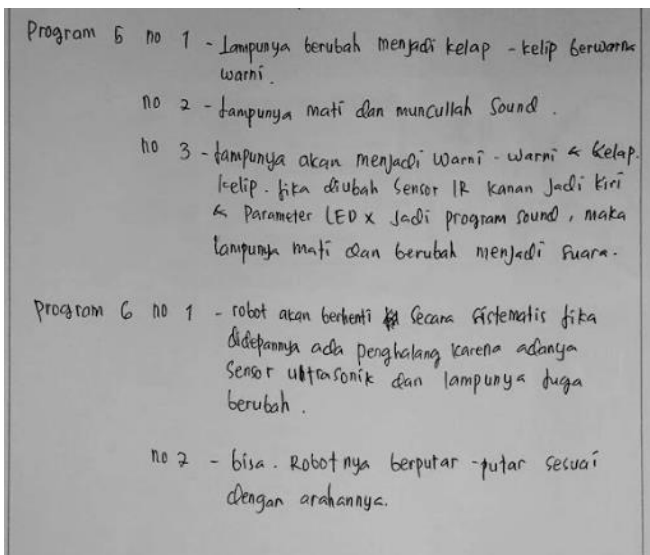 Program 5 no 1 - Lampunya berubah menjadi kelap - kelip berwarna
warni.
no 2 - Lampunya mati dan muncullah Sound.
no 3 - Lampunya akan menjadi warni - warni & kelap.
kelip. jika diubah Sensor IR kanan Jadi kiri
& Parameter LED x Jadi program sound, maka
lampunya mati dan berubah menjadi suara.
Program 6 no 1 - robot akan berhenti secara sistematis jika
didepannya ada penghalang karena adanya
Sensor ultrasonik dan lampunya juga
berubah.
no 2 - bisa. Robotnya berputar -putar sesuai
dengan arahannya.